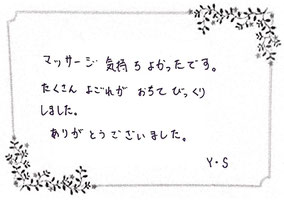 マッサージ 気持ちよかったです。
たくさん よごれが おちて びっくり
しました。
ありがとうございました。
Y・S